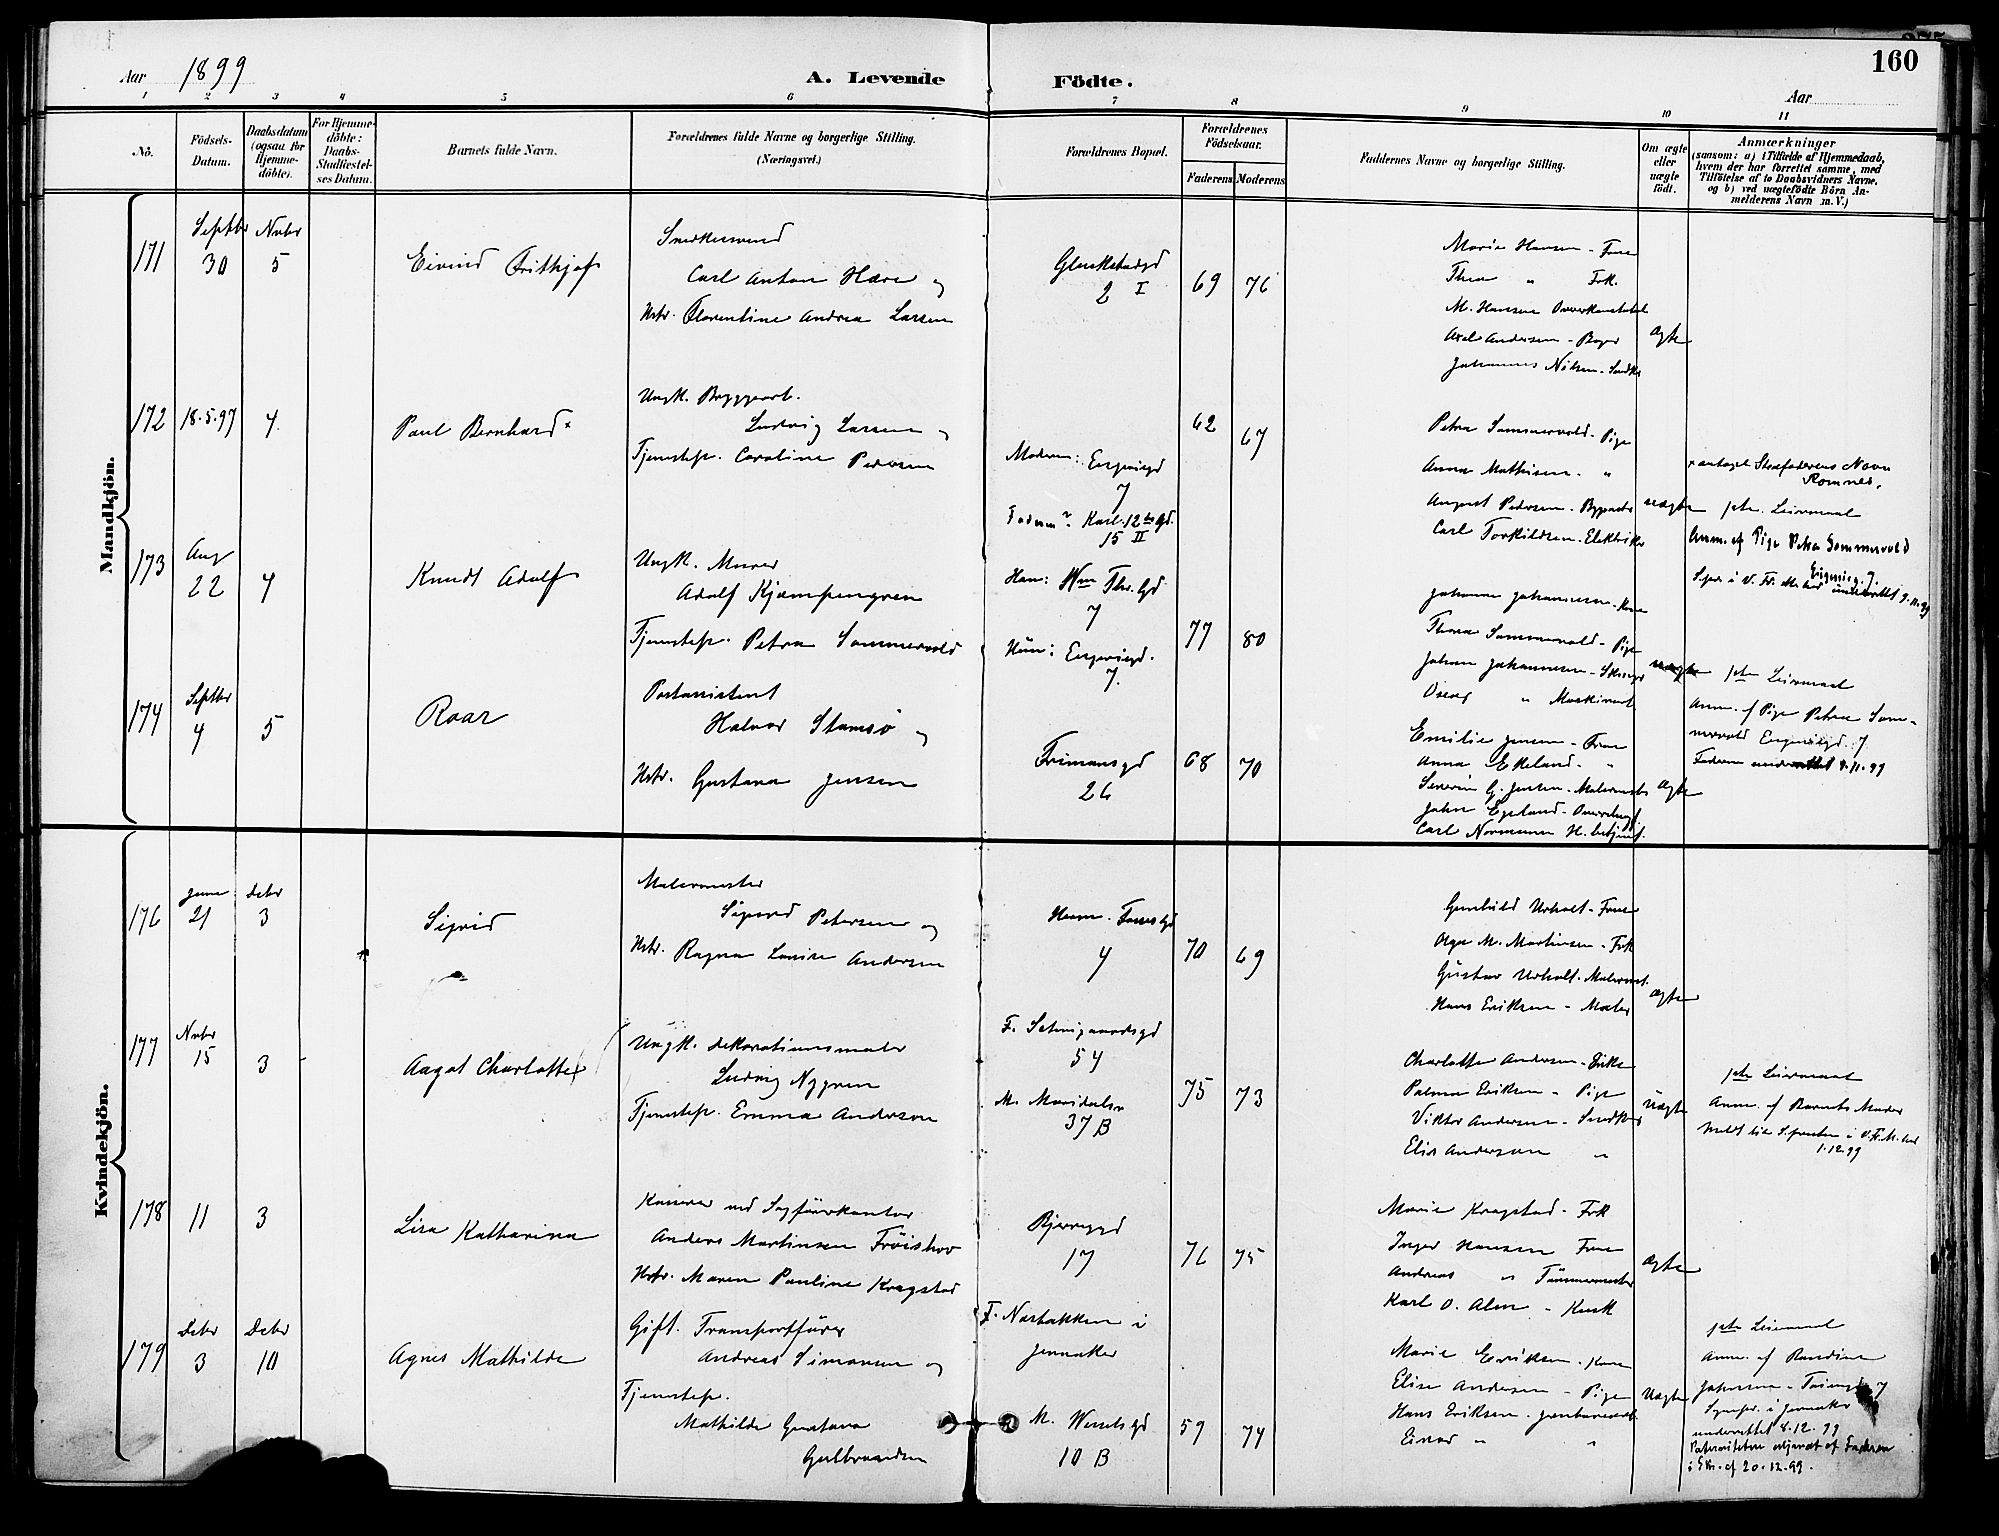 160
Aar 1899
A. Levende Födte.
Aar
1 2 3 4 5 6 7 8 9 10 11
No.
Födsels-
Datum.
Daabsdatum
(ogsaa for
Hjemme-
döbte).
For Hjemme-
döbte:
Daabs-
Stadfæstel-
ses Datum.
Barnets fulde Navn.
Forældrenes fulde Navne og borgerlige Stilling.
(Næringsvei.)
Forældrenes Bopæl.
Forældrenes
Födselsaar.
Faderens Moderens
Faddernes Navne og borgerlige Stilling.
Om ægte
eller
uægte
født.
Anmærkninger
(saasom: a) i Tilfælde af Hjemmedaab,
hvem der har forrettet samme, med
Tilföielse af to Daabsvidners Navne,
og b) ved uægtefödte Börn An-
melderens Navn m. V.)
Mandkjön.
171
Septbr 30
Nvbr 5
Eivind Frithjof
Snedkersvend
Carl Anton Hære og
Hstr. Florentine Andrea Larsen
2 I
69 76
Marie Hansen - Frue
Thea " Frk.
M. Hansen
Axel Andersen - Bager
Johannes Nilsen - Snedker
ægte
172
18.5.97
4
Paul Bernhard x
Ungk. Byggearb.
Ludvig Larsen og
Tjenestep. Caroline Pedersen
Moderen: Engvejgd
7
Karl. 12 tes Gd.
15 II
62 67
Petra Sommervold - Pige
Anna Mathisen - "
August Pedersen -
Carl Torkildsen - Elektriker
uægte
x antaget Stedfaderens Navn
Romnes.
1ste Leiermaal
Anm. af Pige Petra Sommervold
Engveig. 7.
173
Aug 22
4
Knudt Adolf
Ungk. Murer
Adolf Kjempengren
Tjenestep. Petra Sommervold
Han: Wm Thr. Gd
7
Hun: Engveigd.
7.
77 80
Johanne Johannesen - Kone
Thora Sommervold - Pige
Johan Johannesen -
Oscar " Maskinarb.
uægte
1ste Leiermaal
Anm. af Pige Petra Som-
mervold Engveigd. 7
Faderen underrettet 9.11.99
174
Septbr 4
5
Roar
Postassistent
Halvor Stamsö og
Hstr. Gustava Jensen
Frimansgd
26
68 70
Emilie Jensen - Frue
Anna Ekeland - "
Severin G. Jensen - Malermstr
John Egeland -
Carl Normann
ægte
Kvindekjön.
176
Juni 21
Debr 3
Sigrid
Malermester
Sigurd Petersen og
Hstr. Ragna Louise Andersen
4
70 69
Gunhild Urholt - Frue
Olga M. Martinsen - Frk
Gustav Urholt - Malermst.
Hans Eriksen - Maler
ægte
177
Nvbr 15
3
Aagot Charlotte
Ungk. Dekorationsmaler
Ludvig Nygren
Tjenestep. Emma Anderson
F. Schweigaardsgd
54
M. Maridalsv
37 B
75 73
Charlotte Andersen - Enke
Palma Eriksen - Pige
Viktor Andersen - Snedker
Elis Anderson "
uægte
1ste Leiermaal
Anm. af Barnets Moder
1.12.99
178
11
3
Lisa Katharina
Kasserer ved Sagförerkontor
Anders Martinsen Fröishov
Hstr. Maren Pauline Kragstad
Bjerregd
17
76 75
Marie Kragstad - Frk
Inger Hansen Frue
Andreas " Tömmermester
Karl O. Alm - Kusk
ægte
179
Debr 3
Debr 10
Agnes Mathilde
Gift. Transportförer
Andreas Simonsen og
Tjenestep.
Mathilde Gustava
Gulbrandsen
F. Norbakken i
Jevnaker
M. Wesselsgd
10 B
59 74
Marie Eriksen - Kone
Elise Andersen - Pige
Hans Eriksen - Jernbanearb.
Einar " "
uægte
1ste Leiermaal
Anm. af Randine
Johnsen -
underrettet 8.12.99
Paterniteten vedgaaet af Faderen
i Skr. af 20.12.99.